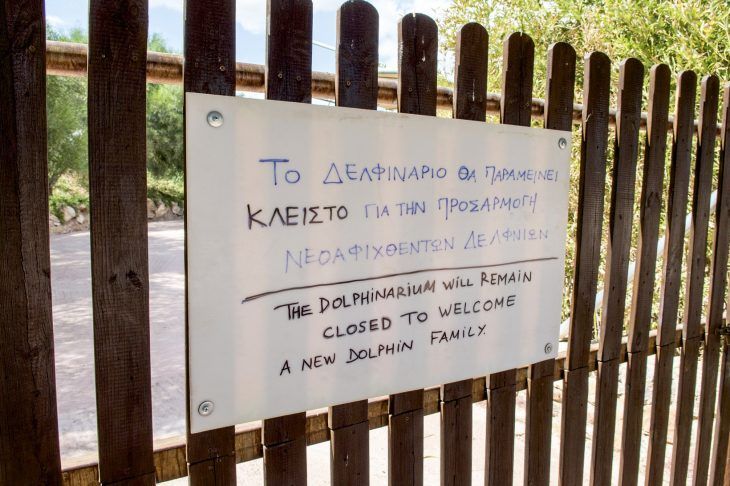 ΤΟ ΔΕΛΦΙΝΑΡΙΟ ΘΑ ΠΑΡΑΜΕΙΝΕΙ
ΚΛΕΙΣΤΟ ΓΙΑ ΤΗΝ ΠΡΟΣΑΡΜΟΓΗ
ΝΕΟΑΦΙΧΘΕΝΤΩΝ ΔΕΛΦΝΙΩΝ
THE DOLPHINARIUM WILL REMAIN
CLOSED TO WELCOME
A NEW DOLPHIN FAMILY.